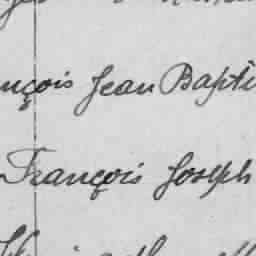 nçois Jean Bapti
François Joseph